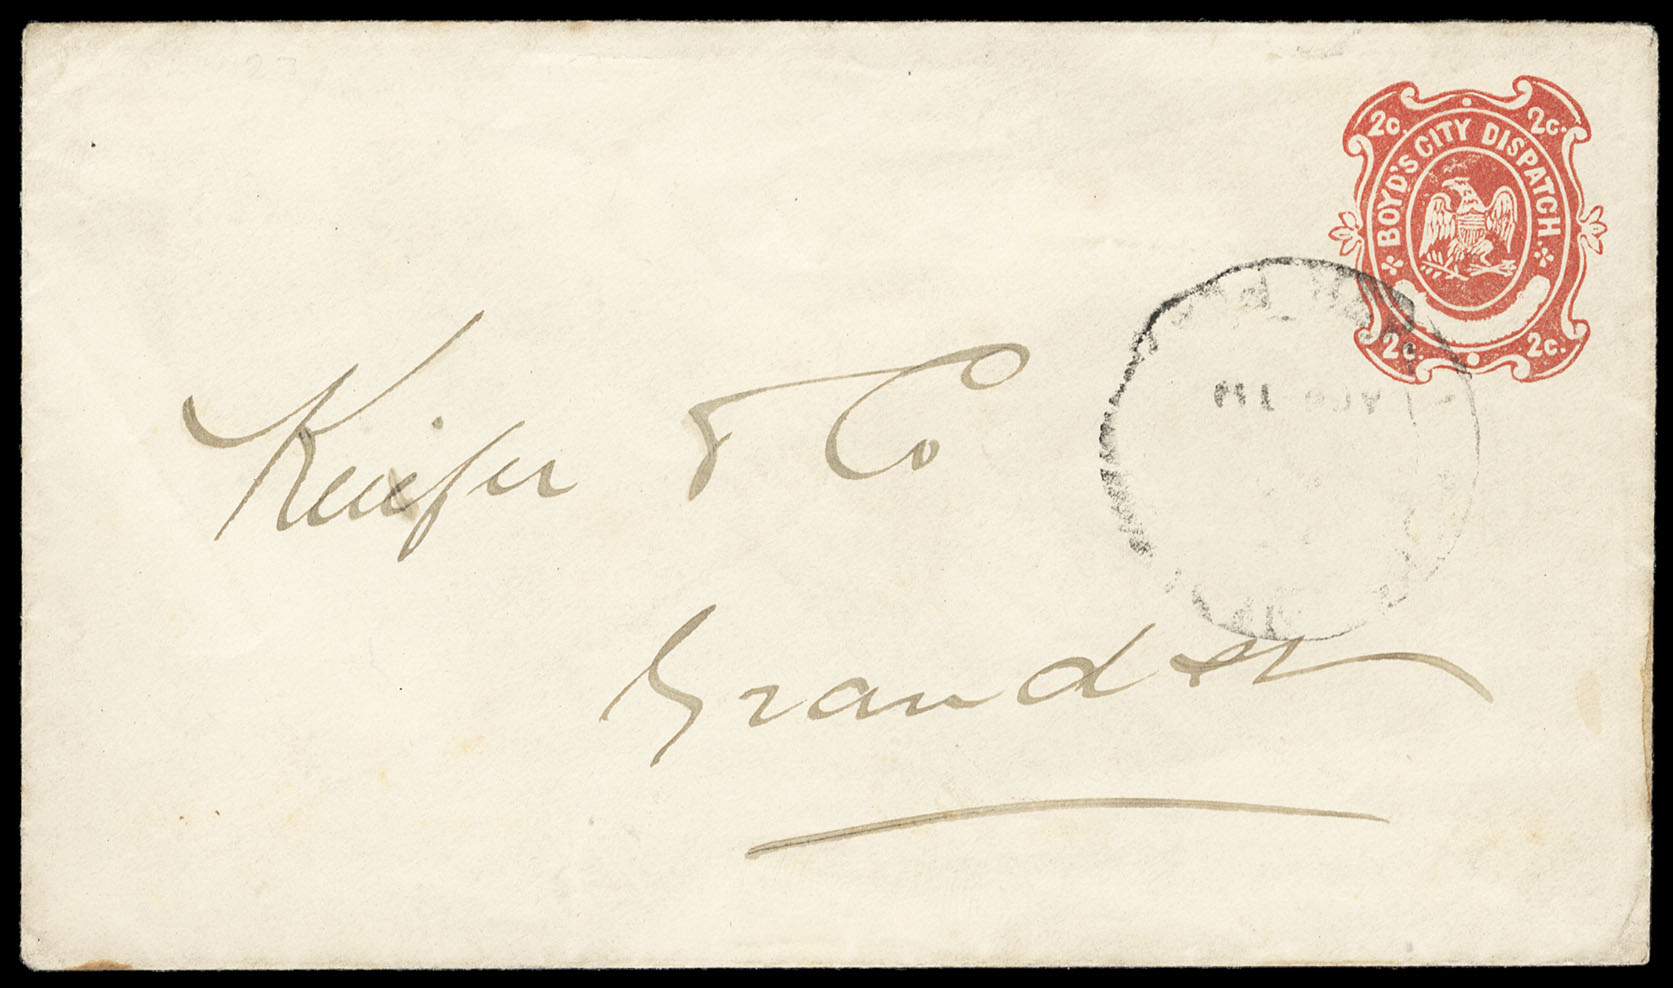 2c. 2c.
BOYD'S CITY DISPATCH.
2c. 2c.
Keiifer & Co
Grand st